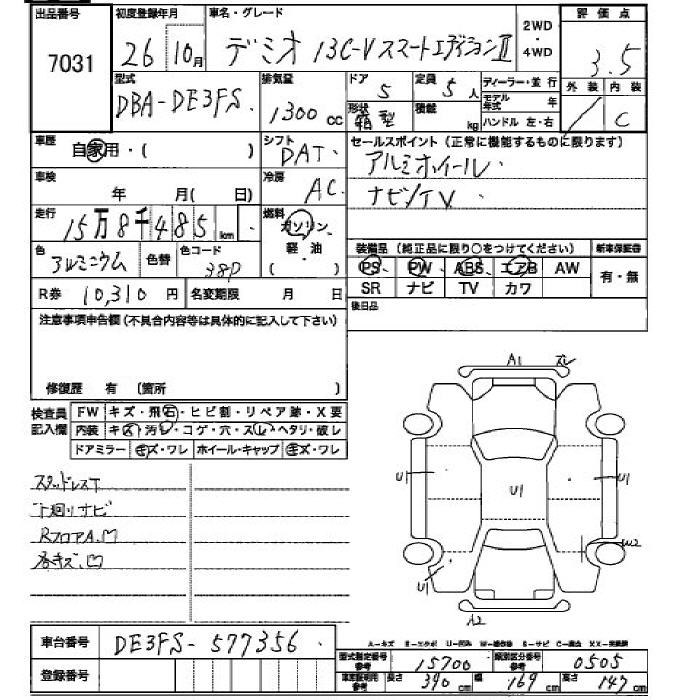 出品番号 初度登録年月 車名・グレード 2WD・4WD 評価点
7031 26 10月 デミオ 13C-V スマートエディションⅡ 3.5
型式 排気量 ドア 定員 ディーラー・並行 外装 内装
DBA-DE3FS 1300cc 5 5人 モデル年式 年 / C
形状 箱型 積載 kg ハンドル 左・右
車歴 自家用・( ) シフト DAT セールスポイント (正常に機能するものに限ります)
アルミホイール
ナビ/TV
車検 年 月( 日) 冷房 AC
走行 15万8千485km 燃料 ガソリン 軽・油 ( )
色 アルミニウム 色替 色コード 38P
装備品 (純正品に限り○をつけてください) 新車保証書
PS PW ABS エアB AW 有・無
SR ナビ TV カワ
R券 10,310円 名変期限 月 日 後日品
注意事項申告欄(不具合内容等は具体的に記入して下さい)
修復歴 有 (箇所 )
検査員記入欄 FW キズ・飛石・ヒビ割・リペア跡・X要
内装 キズ・汚レ・コゲ・穴・スレ・ヘタリ・破レ
ドアミラー キズ・ワレ ホイール・キャップ キズ・ワレ
スタッドレスT
下廻りサビ
RフロアA.凹
各キズ.凹
A1 ズレ
U1 U1 U1
W2
U1
A2
車台番号 DE3FS-577356
登録番号
A-キズ E-エクボ U-凹み W-補修跡 S-サビ C-腐食 XX-交換跡
型式指定番号 参考 15700 類別区分番号 参考 0505
車庫証明用 参考 長さ 390cm 幅 169cm 高さ 147cm